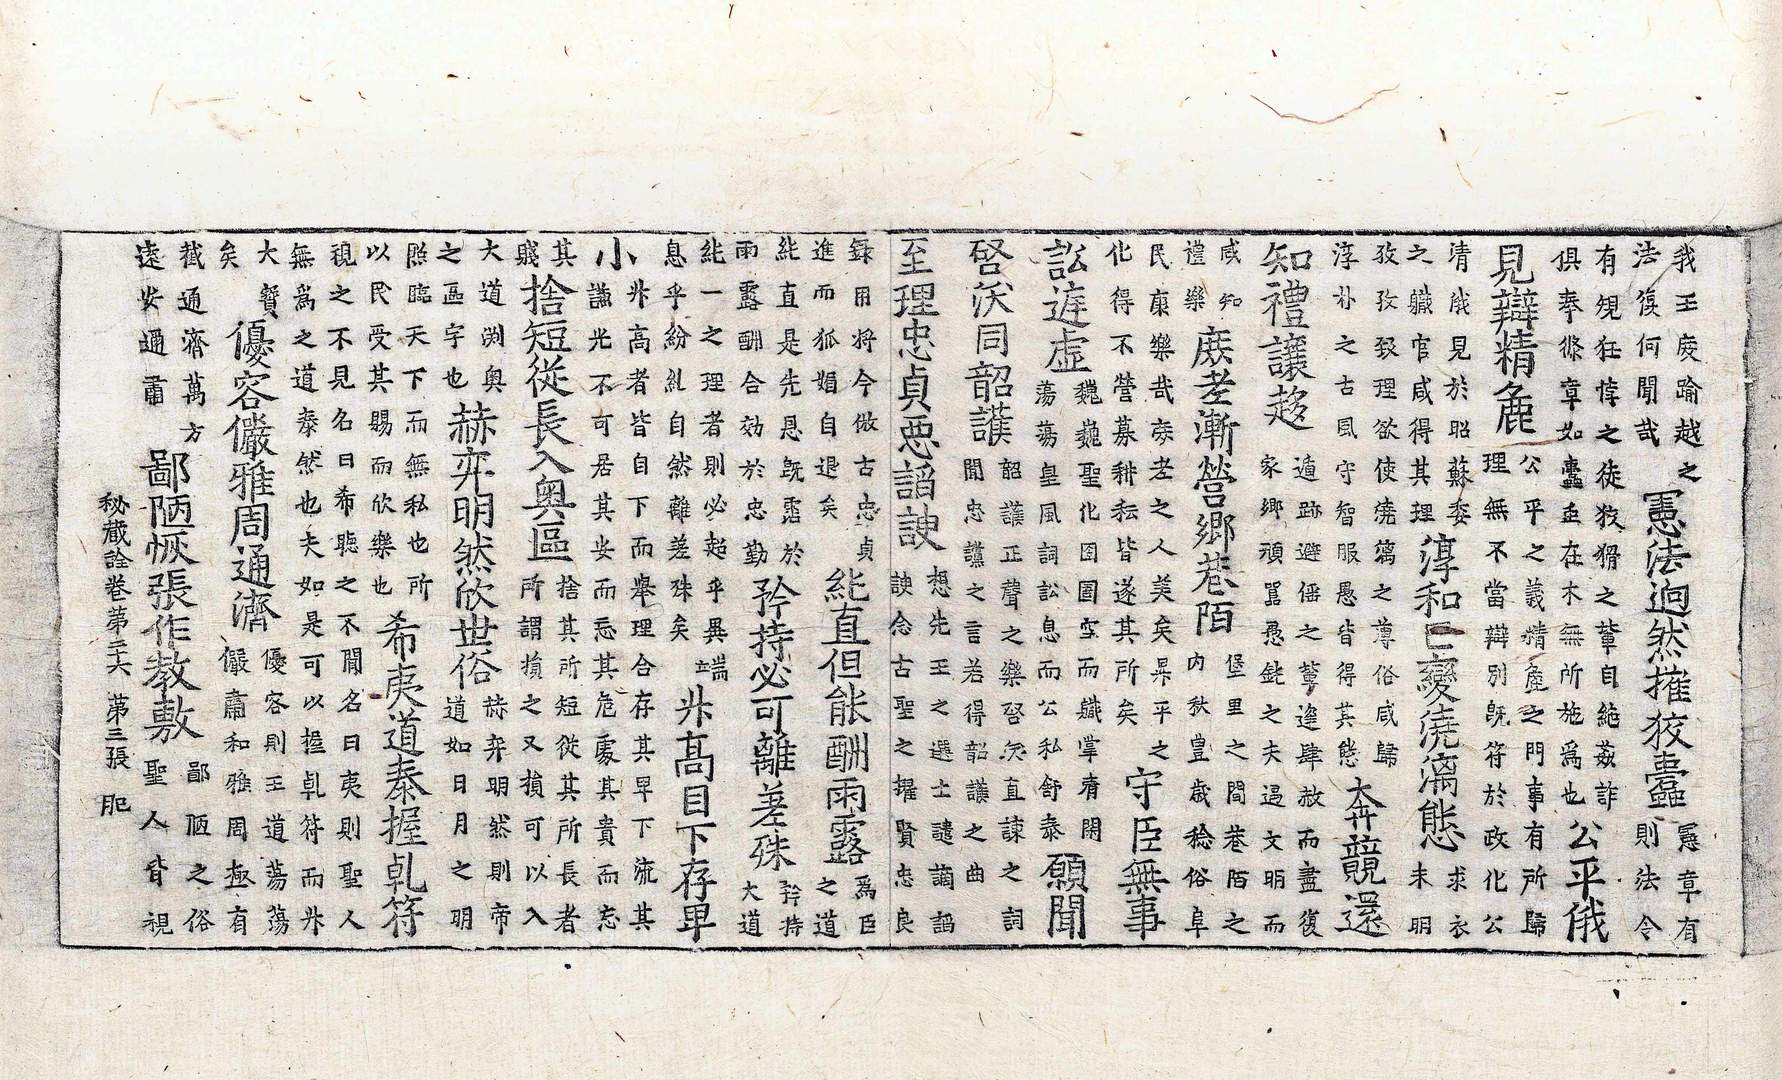 我王度踰越之
法復何聞哉
憲法逈然摧狡蠹
憲章有
則法令
有規狂悖之徒狡猾之輩自絁姦詐
俱奉條章如蠹在木無所施爲也
公平俄
見辯精麁
公平之義精麁之門事有所歸
理無不當辯別旣符於政化公
清俄見於昭蘇委
之職官咸得其理
淳和已變澆漓態
求衣
未明
孜孜致理欲使澆漓之薄俗咸歸
淳朴之古風守智服愚皆得其態
奔競還
知禮讓趍
遁跡避傜之輩逄肆赦而盡復
家鄉頑嚚愚鈍之夫遇文明而
咸知
禮樂
庶老漸營鄉巷陌
堡里之間巷陌之
内秋豊歲稔俗阜
民康樂哉庶老之人美矣昇平之
化得不營募耕耘皆遂其所矣
守臣無事
訟遲虛
巍巍聖化囹圄空而職掌霄閑
蕩蕩皇風詞訟息而公私舒泰
願聞
啓沃同韶護
韶護正聲之樂啓沃直諫之詞
聞忠讜之言若得韶護之曲
至理忠貞惡諂諛
想先王之選士譴謫諂
諛念古聖之擢賢忠良
録用將今倣古忠貞
進而狐媚自退矣
能直但能酬雨露
爲臣
之道
能直是先恩旣霑於
雨露酬合効於忠勤
矜持必可離差殊
矜持
大道
能一之理者則必起乎異端
息乎紛糺自然離差殊矣
升高目下存卑
小
升高者皆自下而舉理合存其卑下流其
謙光不可居其安而忘其危處其貴而忘
其
賤
捨短從長入奥區
捨其所短從其所長者
所謂損之又損可以入
大道渕奥
之區宇也
赫弈明然欣世俗
赫弈明然則帝
道如日月之明
照臨天下而無私也所
以民受其賜而欣樂也
希夷道泰握乹符
視之不見名曰希聽之不聞名曰夷則聖人
無爲之道泰然也夫如是可以握乹符而升
大寳
矣
優容儼雅周通濟
優容則王道蕩蕩
儼肅和雅周極有
截通濟萬方
遠安邇肅
鄙陋恢張作教敷
鄙陋之俗
聖人皆視
秘藏詮卷第二十六 第三張 肥